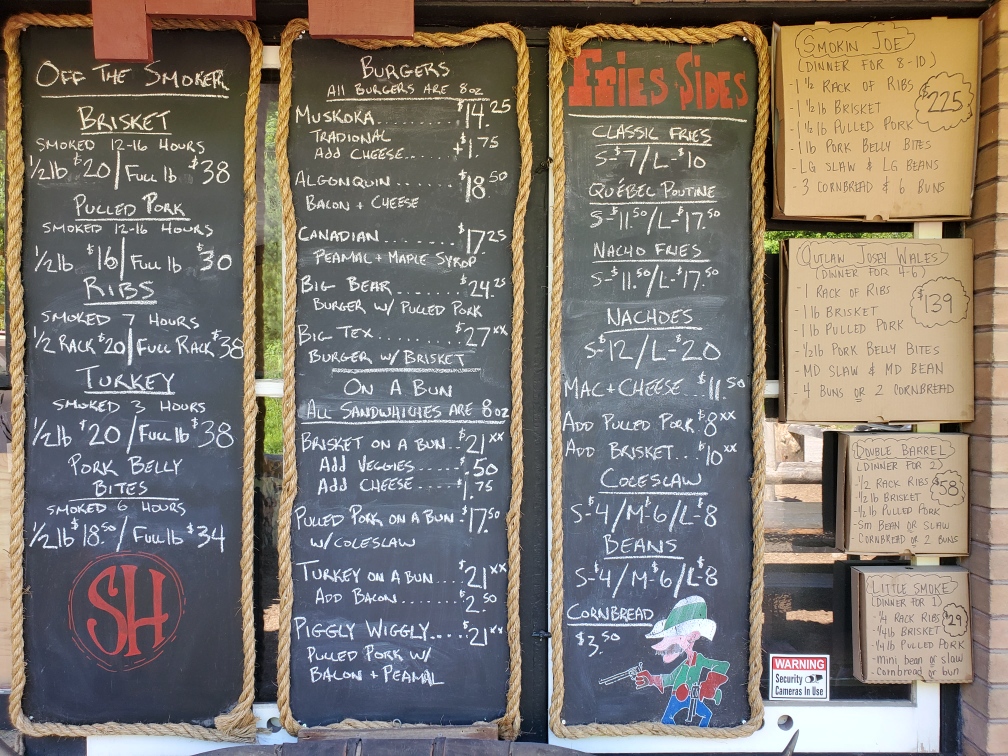 OFF THE SMOKER
BRISKET
SMOKED 12-16 HOURS
1/2 lb $20 / Full lb $38
PULLED PORK
SMOKED 12-16 HOURS
1/2 lb $16 / Full lb $30
RIBS
SMOKED 7 HOURS
1/2 RACK $20 / FULL RACK $38
TURKEY
SMOKED 3 HOURS
1/2 lb $20 / Full lb $38
PORK BELLY
BITES
SMOKED 6 HOURS
1/2 lb $18.50 / Full lb $34
SH
BURGERS
All BURGERS ARE 8oz
MUSKOKA......... $14.25
TRADIONAL
ADD CHEESE..... +$1.75
ALGONQUIN....... $18.50
BACON + CHEESE
CANADIAN........ $17.25
PEAMAL + MAPLE SYROP
BIG BEAR........ $24.25
BURGER W/ PULLED PORK
BIG TEX......... $27xx
BURGER W/ BRISKET
ON A BUN
ALL SANDWHICHES ARE 8oz
BRISKET ON A BUN.. $21xx
ADD VEGGIES...... $.50
ADD CHEESE....... $1.75
PULLED PORK ON A BUN. $17.50
W/COLESLAW
TURKEY ON A BUN.... $21xx
ADD BACON......... $2.50
PIGGLY WIGGLY.... $21xx
PULLED PORK W/
BACON + PEAMAL
Fries Sides
CLASSIC FRIES
S-$7/L-$10
QUÉBEC POUTINE
S-$11.50/L-$17.50
NACHO FRIES
S-$11.50/L-$17.50
NACHOES
S-$12/L-$20
MAC + CHEESE..$11.50
ADD PULLED PORK $8xx
ADD BRISKET...$10xx
COLESLAW
S-$4/M-$6/L-$8
BEANS
S-$4/M-$6/L-$8
CORNBREAD
$3.50
SMOKIN JOE
(DINNER FOR 8-10)
- 1 1/2 RACK OF RIBS
- 1 1/2 lb BRISKET
- 1 1/2 lb PULLED PORK
- 1 lb PORK BELLY BITES
- LG SLAW & LG BEANS
- 3 CORNBREAD & 6 BUNS
$225
OUTLAW JOSEY WALES
(DINNER FOR 4-6)
- 1 RACK OF RIBS
- 1 lb BRISKET
- 1 lb PULLED PORK
- 1/2 lb PORK BELLY BITES
- MD SLAW & MD BEAN
- 4 BUNS OR 2 CORNBREAD
$139
DOUBLE BARREL
(DINNER FOR 2)
- 1/2 RACK RIBS
- 1/2 lb BRISKET
- 1/2 lb PULLED PORK
- Sm BEAN OR SLAW
- CORNBREAD OR 2 BUNS
$58
LITTLE SMOKE
(DINNER FOR 1)
- 1/4 RACK RIBS
- 1/4 lb BRISKET
- 1/4 lb PULLED PORK
- mini bean or slaw
- Cornbread or bun
$29
WARNING
Security
Cameras In Use